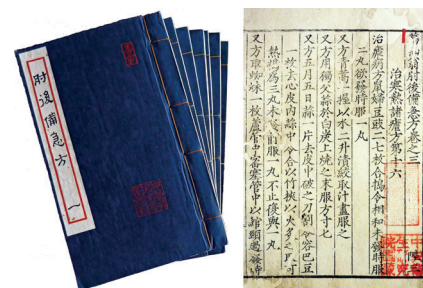 肘後備急方 一
葛仙翁肘後備急方卷之三
治寒熱諸瘧方第十六
治瘧病方鼠婦豆豉二七枚合擣令相和未發時服
二丸欲發時服一丸
又方青蒿一握以水二升漬絞取汁盡服之
又方用獨父蒜於白炭上燒之末服方寸匕
又方五月五日蒜一片去皮中破之刀割令容巴豆
一枚去心皮內蒜中令合以竹挾以火炙之取可
熱擣為三丸未發前服一丸不止復與一丸
又方取蜘蛛一枚蘆管中密塞管中以綰頸過發時